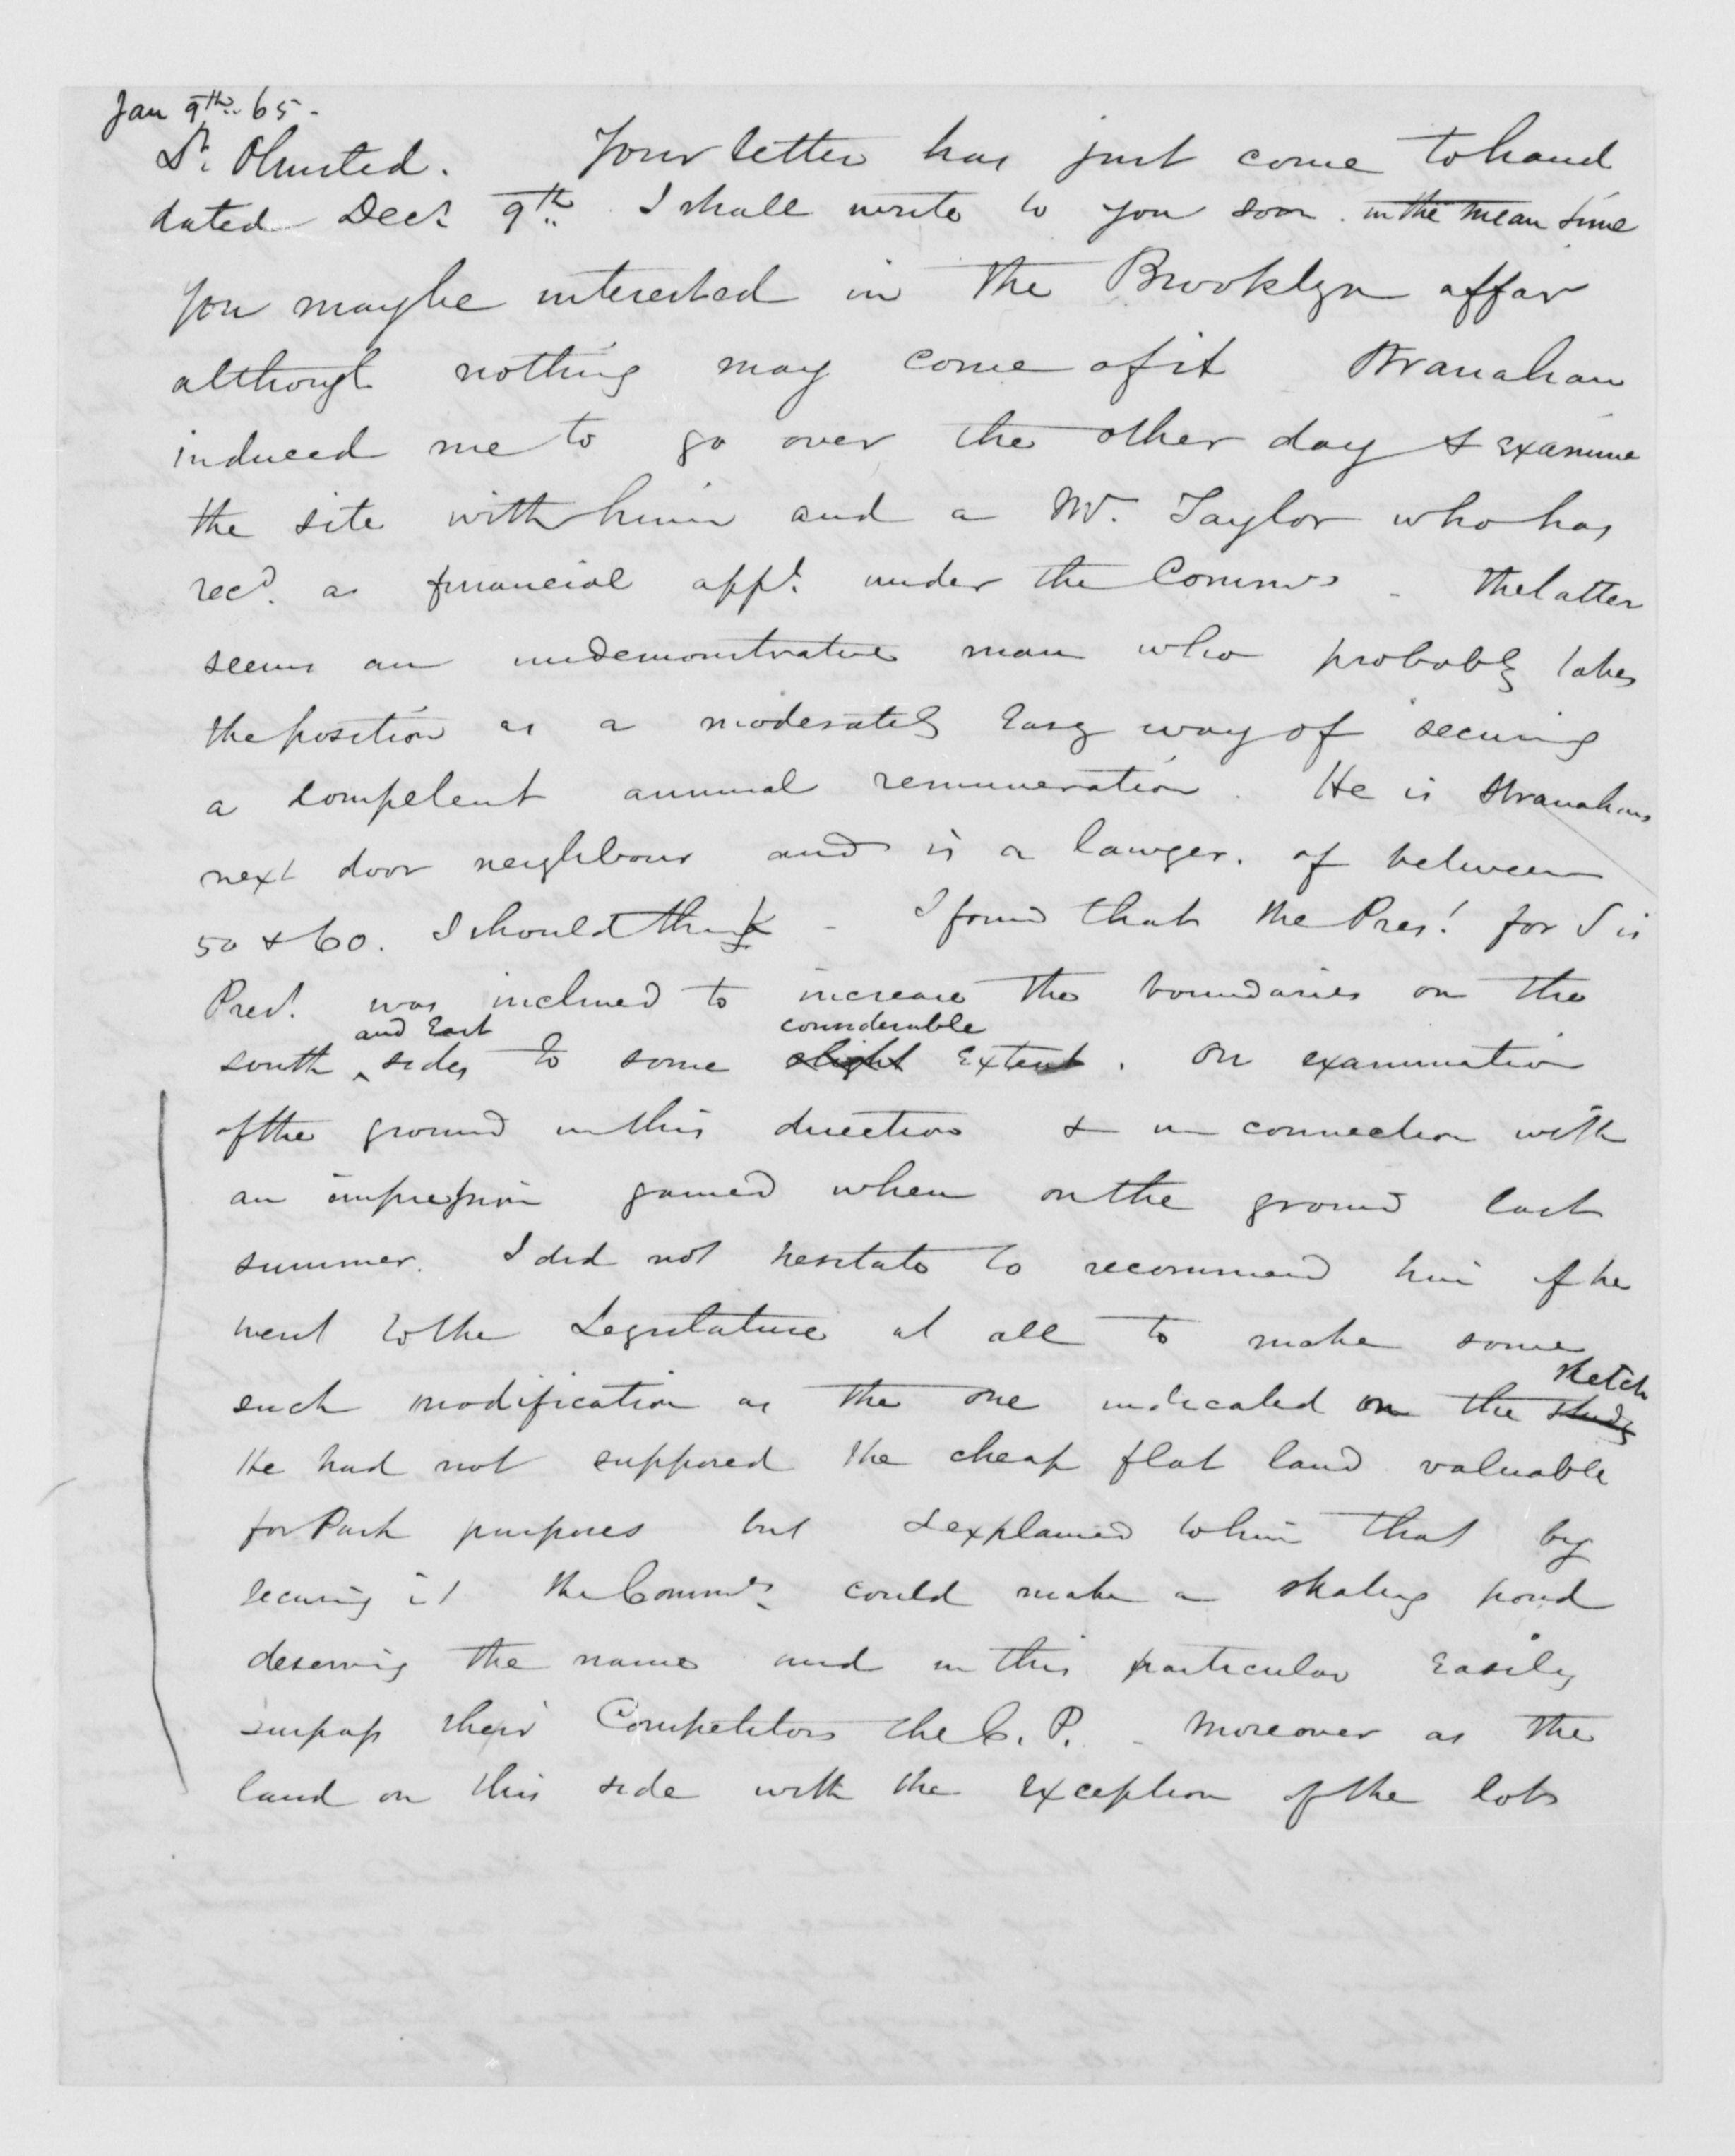 Jan 9th. 65-
Dr. Olmsted. Your letter has just come to hand
dated Decr 9th. I shall write to you soon. in the mean time
you may be interested in the Brooklyn affair
although nothing may come of it Stranahan
induced me to go over the other day & examine
the site with him and a Mr. Taylor who has
recd. a financial appt. under the Commrs - the latter
seems an undemonstrative man who probably takes
the position as a moderately easy way of securing
a competent annual remuneration. He is Stranahans
next door neighbour and is a lawyer. of between
50 & 60. I should think - I found that the Prest. for S is
Prest. was inclined to increase the boundaries on the
and East considerable
south ^ sides to some slight extent. On examination
of the ground in this direction & in connection with
an impression gained when on the ground last
summer. I did not hesitate to recommend him if he
went to the Legislature at all to make some
sketch
such modification as the one indicated on the study
He had not supposed the cheap flat land valuable
for Park purposes but I explained to him that by
securing it the Commrs. could make a skating pond
deserving the name and in this particular easily
surpass their Competitors the C. P. - Moreover as the
land on this side with the exception of the lots